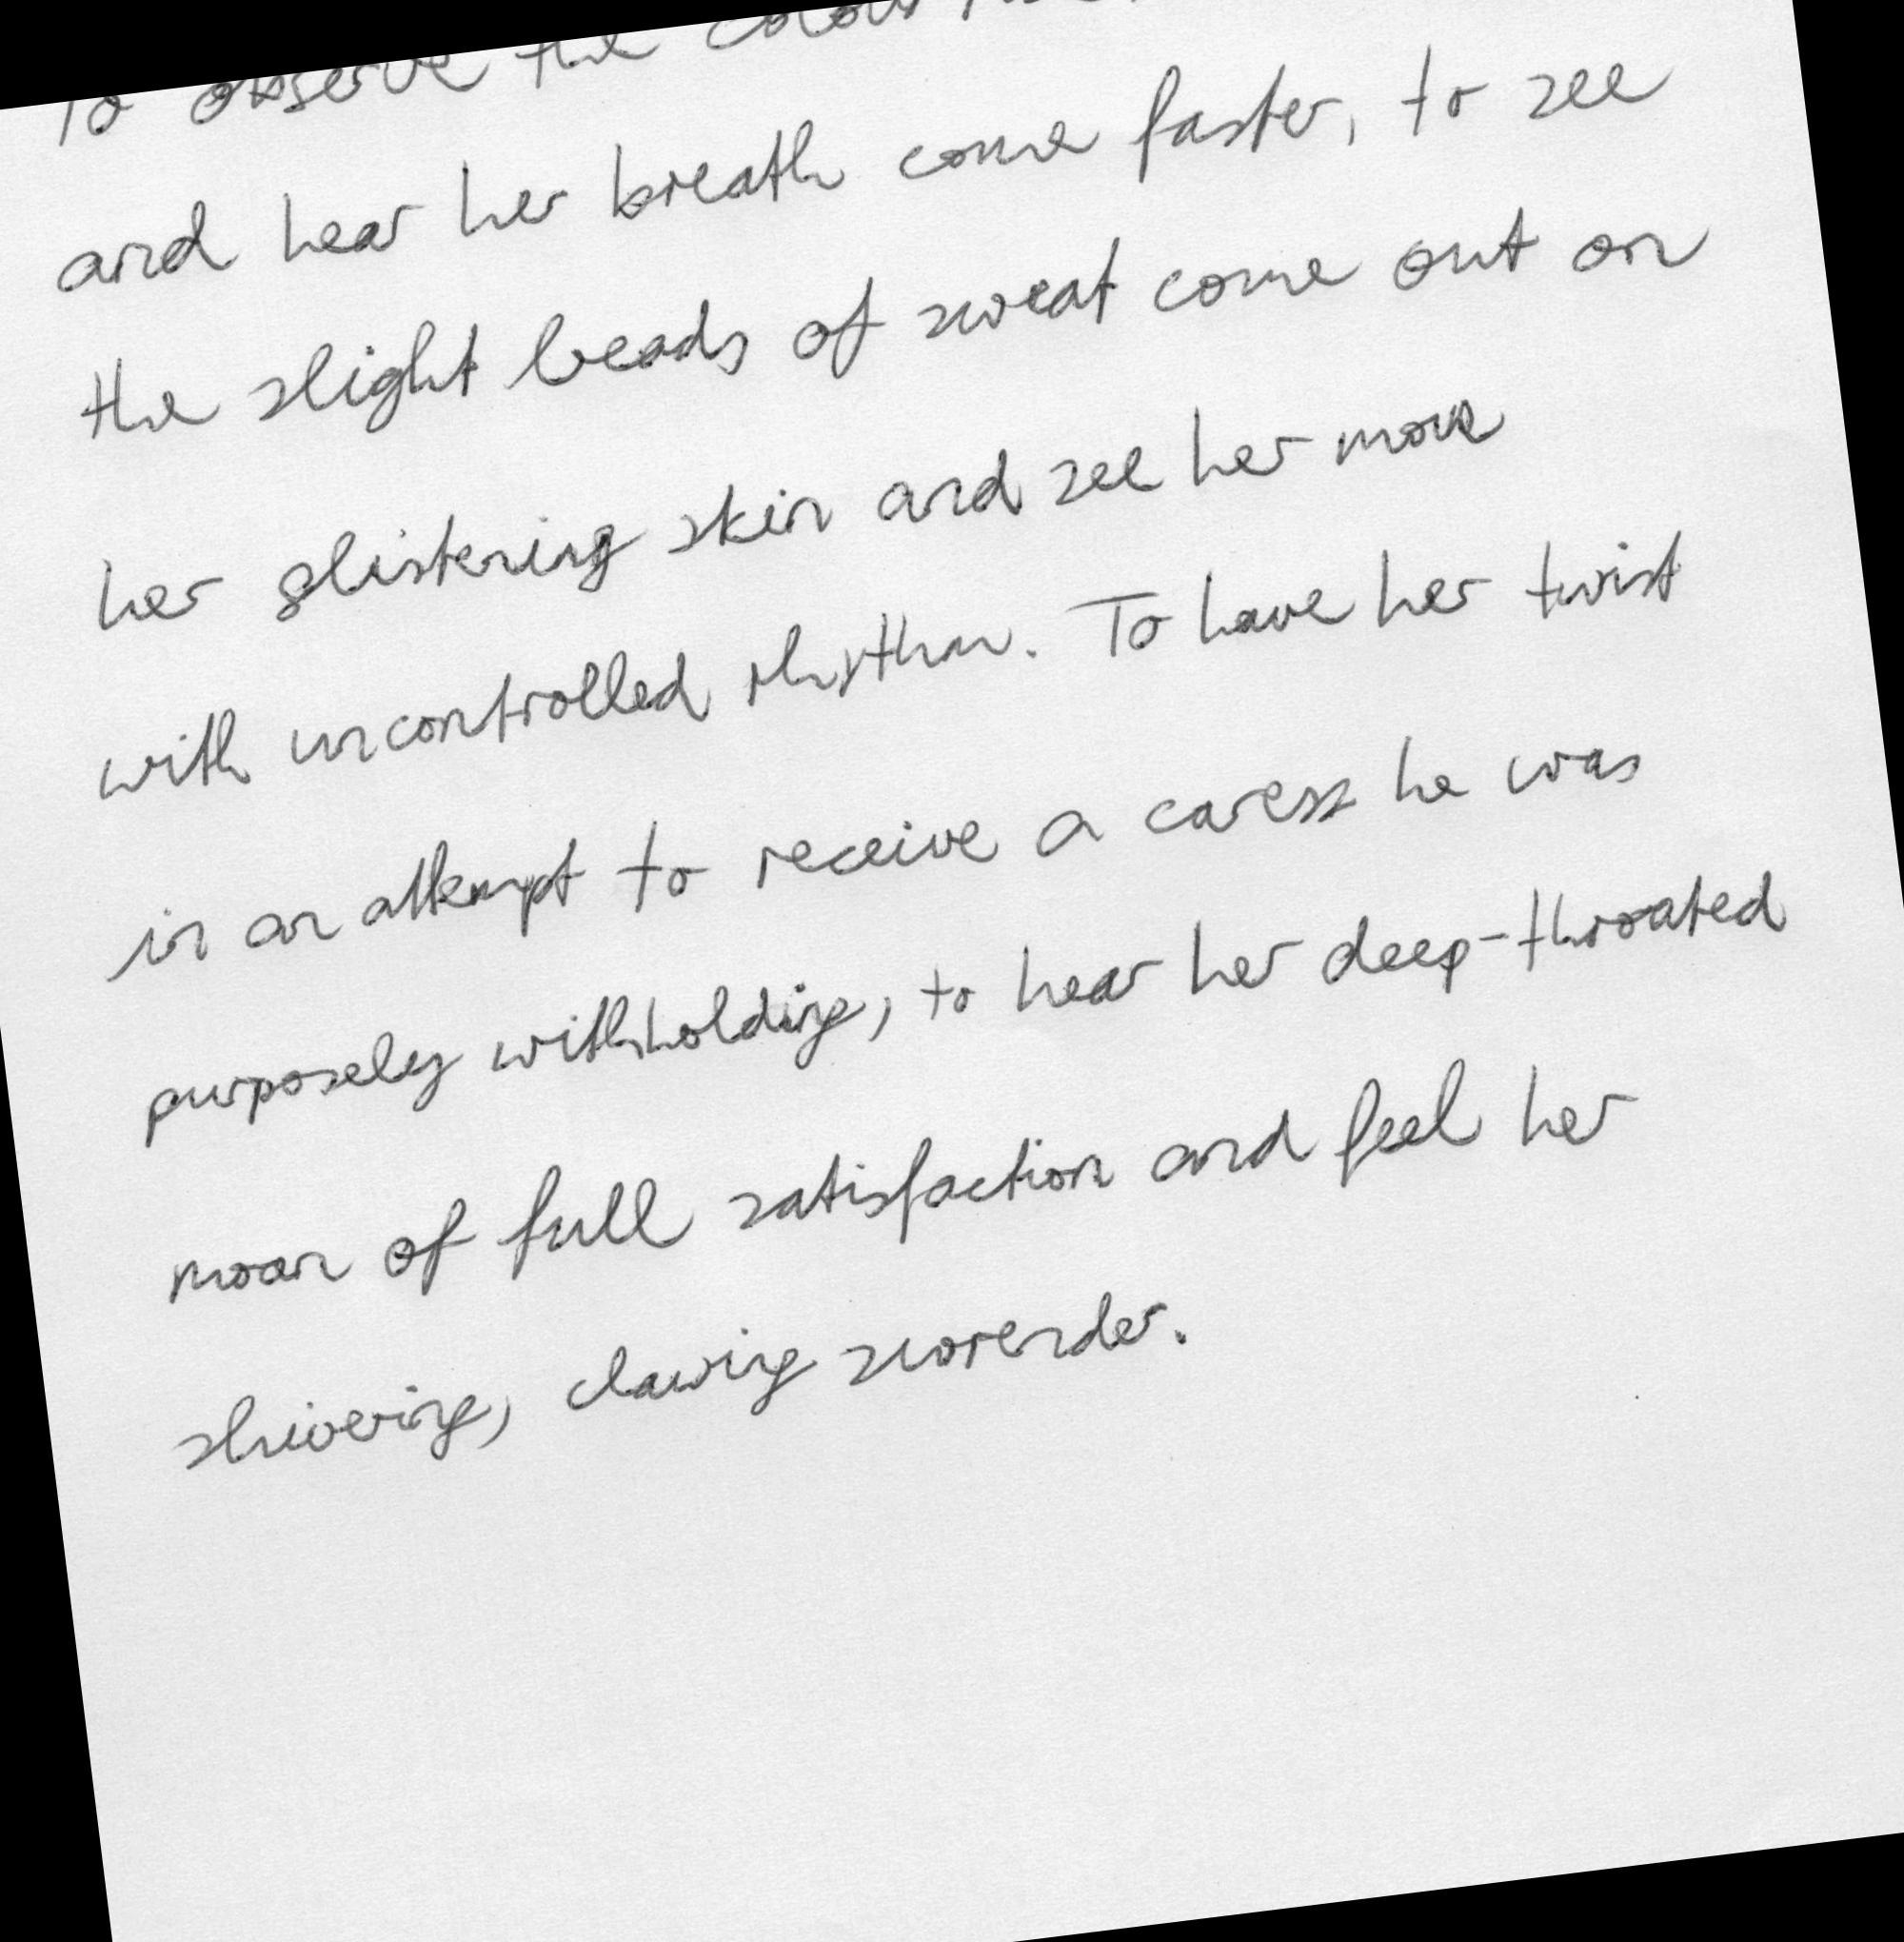 To observe the colour
and hear her breath come faster, to see
the slight beads of sweat come out on
her glistening skin and see her move
with uncontrolled rhythm. To have her twist
in an attempt to receive a caress he was
purposely withholding, to hear her deep-throated
moan of full satisfaction and feel her
shivering, clawing surrender.